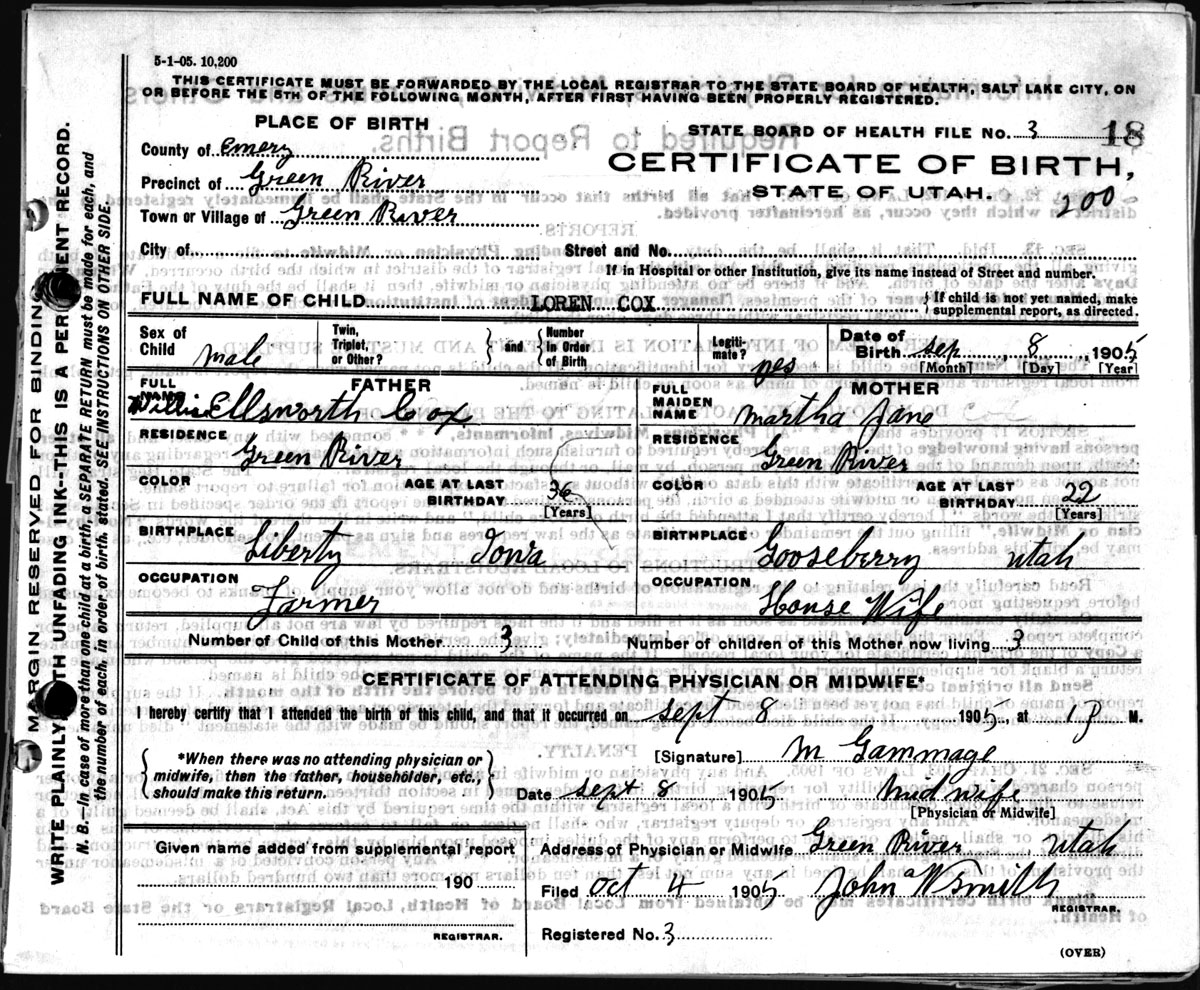 5-1-05. 10,200
THIS CERTIFICATE MUST BE FORWARDED BY THE LOCAL REGISTRAR TO THE STATE BOARD OF HEALTH, SALT LAKE CITY, ON
OR BEFORE THE 5TH OF THE FOLLOWING MONTH, AFTER FIRST HAVING BEEN PROPERLY REGISTERED.
PLACE OF BIRTH
STATE BOARD OF HEALTH FILE No. 3 18
County of Emery
CERTIFICATE OF BIRTH,
Precinct of Green River
STATE OF UTAH. 200
Town or Village of Green River
City of Street and No.
If in Hospital or other Institution, give its name instead of Street and number.
FULL NAME OF CHILD LOREN COX { If child is not yet named, make
supplemental report, as directed.
Sex of Child male
Twin, Triplet, or Other? } and { Number in Order of Birth
Legitimate? yes
Date of Birth Sep 8 1905
[Month] [Day] [Year]
FATHER
FULL NAME Willis Ellsworth Cox
RESIDENCE Green River
COLOR AGE AT LAST BIRTHDAY 36
[Years]
BIRTHPLACE Liberty Iowa
OCCUPATION Farmer
MOTHER
FULL MAIDEN NAME Martha Jane
RESIDENCE Green River
COLOR AGE AT LAST BIRTHDAY 22
[Years]
BIRTHPLACE Gooseberry Utah
OCCUPATION House Wife
Number of Child of this Mother 3 Number of children of this Mother now living 3
CERTIFICATE OF ATTENDING PHYSICIAN OR MIDWIFE*
I hereby certify that I attended the birth of this child, and that it occurred on Sept 8 1905, at 1 P M.
{ *When there was no attending physician or
midwife, then the father, householder, etc.,
should make this return. }
[Signature] M Gammage
Date Sept 8 1905 Midwife
[Physician or Midwife]
Given name added from supplemental report
190
REGISTRAR.
Address of Physician or Midwife Green River Utah
Filed Oct 4 1905 John W Smith
REGISTRAR.
Registered No. 3
(OVER)
MARGIN RESERVED FOR BINDING
WRITE PLAINLY WITH UNFADING INK--THIS IS A PERMANENT RECORD.
N. B.--In case of more than one child at a birth, a SEPARATE RETURN must be made for each, and
the number of each, in order of birth, stated. SEE INSTRUCTIONS ON OTHER SIDE.